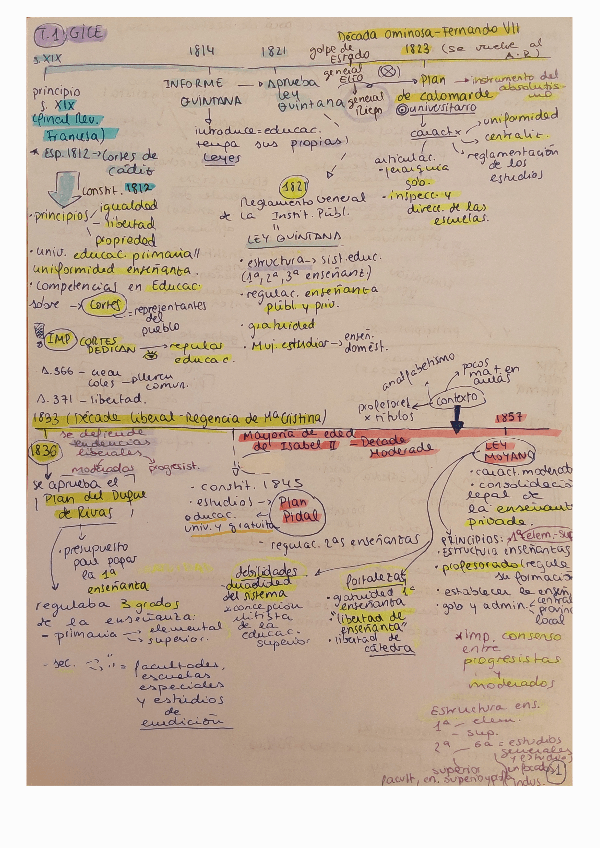 T.1 GICE
Década Ominosa-Fernando VII
s. XIX
1814
1821
golpe de Estado
1823 (se vuelve al A.R)
general Elío
general Riego
principio
s. XIX
(final Rev.
Francesa)
* Esp. 1812 → Cortes de
Cádiz
constit. 1812
· principios
igualdad
libertad
propiedad
· univ. educac. primaria"
uniformidad enseñanza.
· competencias en Educac.
sobre → Cortes
= representantes
del
pueblo
IMP CORTES
DEDICAN → regulas
educac.
371 - libertad.
INFORME
QUINTANA
→ Aprueba
Ley
Quintana
introduce = educac.
tenga sus propias
leyes
Plan
de calomarde
→ instrumento del
absolutismo
universitario
caract.
uniformidad
centraliz.
reglamentación
de los
estudios
articular.
- jerarquía
gob.
- inspecc. y
direcc. de las
escuelas.
1821
Reglamento General
de la Instit. Públ.
"
LEY QUINTANA
· estructura → sist. educ.
(1ª, 2ª, 3ª enseñanz.)
· regulac. enseñanza
públ. y priv.
· gratuidad
· Muj. estudiar → enseñ.
domést.
analfabetismo
pocos
mat. en
aulas
profesores
x títulos
Contexto
1833 (Década liberal-Regencia de Mª Cristina)
1857
Mayoría de edad
de Isabel II = Década
Moderada
1836
se defiende
tendencias
liberales
moderados
progresist.
se aprueba el
Plan del Duque
de Rivas
· presupuesto
para pagar
la 1ª
enseñanza
regulaba 3 grados
de la enseñanza:
- primaria
elemental
superior.
- sec.
" = facultades,
escuelas
especiales
y estudios
de
erudición
- constit. 1845
· estudios → Plan
Pidal
educac.
univ. y gratuita
- regulac. 2as enseñanzas
LEY
MOYANO
· caract. moderato
· consolidación
legal de
la enseñanza
privada.
PRINCIPIOS: 1ª elem.-Sup
estructura enseñanzas
profesorado (regule
su formación
· establecer le enseñ.
· gob y admin.
central
provinc
local
debilidades
- dualidad
del sistema
x concepción
elitista
de la
educac.
superior
fortalezas
· gratuidad 1ª
enseñanza
· "libertad de
enseñanza"
· libertad de
cátedra
* Imp. consenso
entre
progresistas
y
moderados
Estructura ens.
1ª - elem.
- sup.
2ª - 6a = estudios
generales
y estudios
superior
enfocados
indus.
1